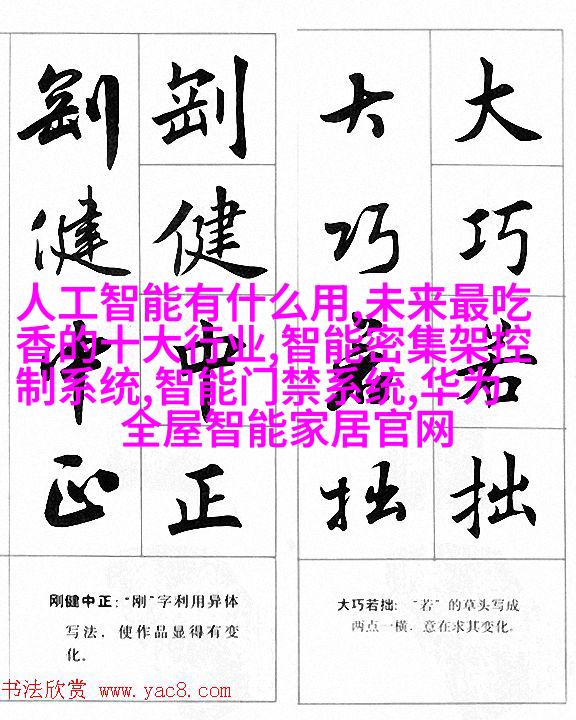 大巧若拙
大巧若拙
刚健中正
刚健中正
人工智能有什么用,未来最吃
香的十大行业,智能密集架控
制系统,智能门禁系统,华为
全屋智能家居官网
刚健中正:“刚”字利用异体
写法，使作品显得有变
化。
大巧若拙: “若”的草头写成
两点一横，意在求其变化。
书法欣赏 www.yac8.com